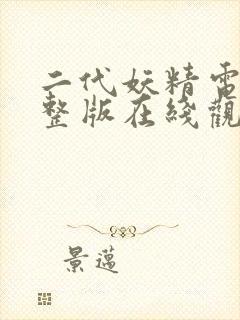 二代妖精電
整版在綫觀
景邁